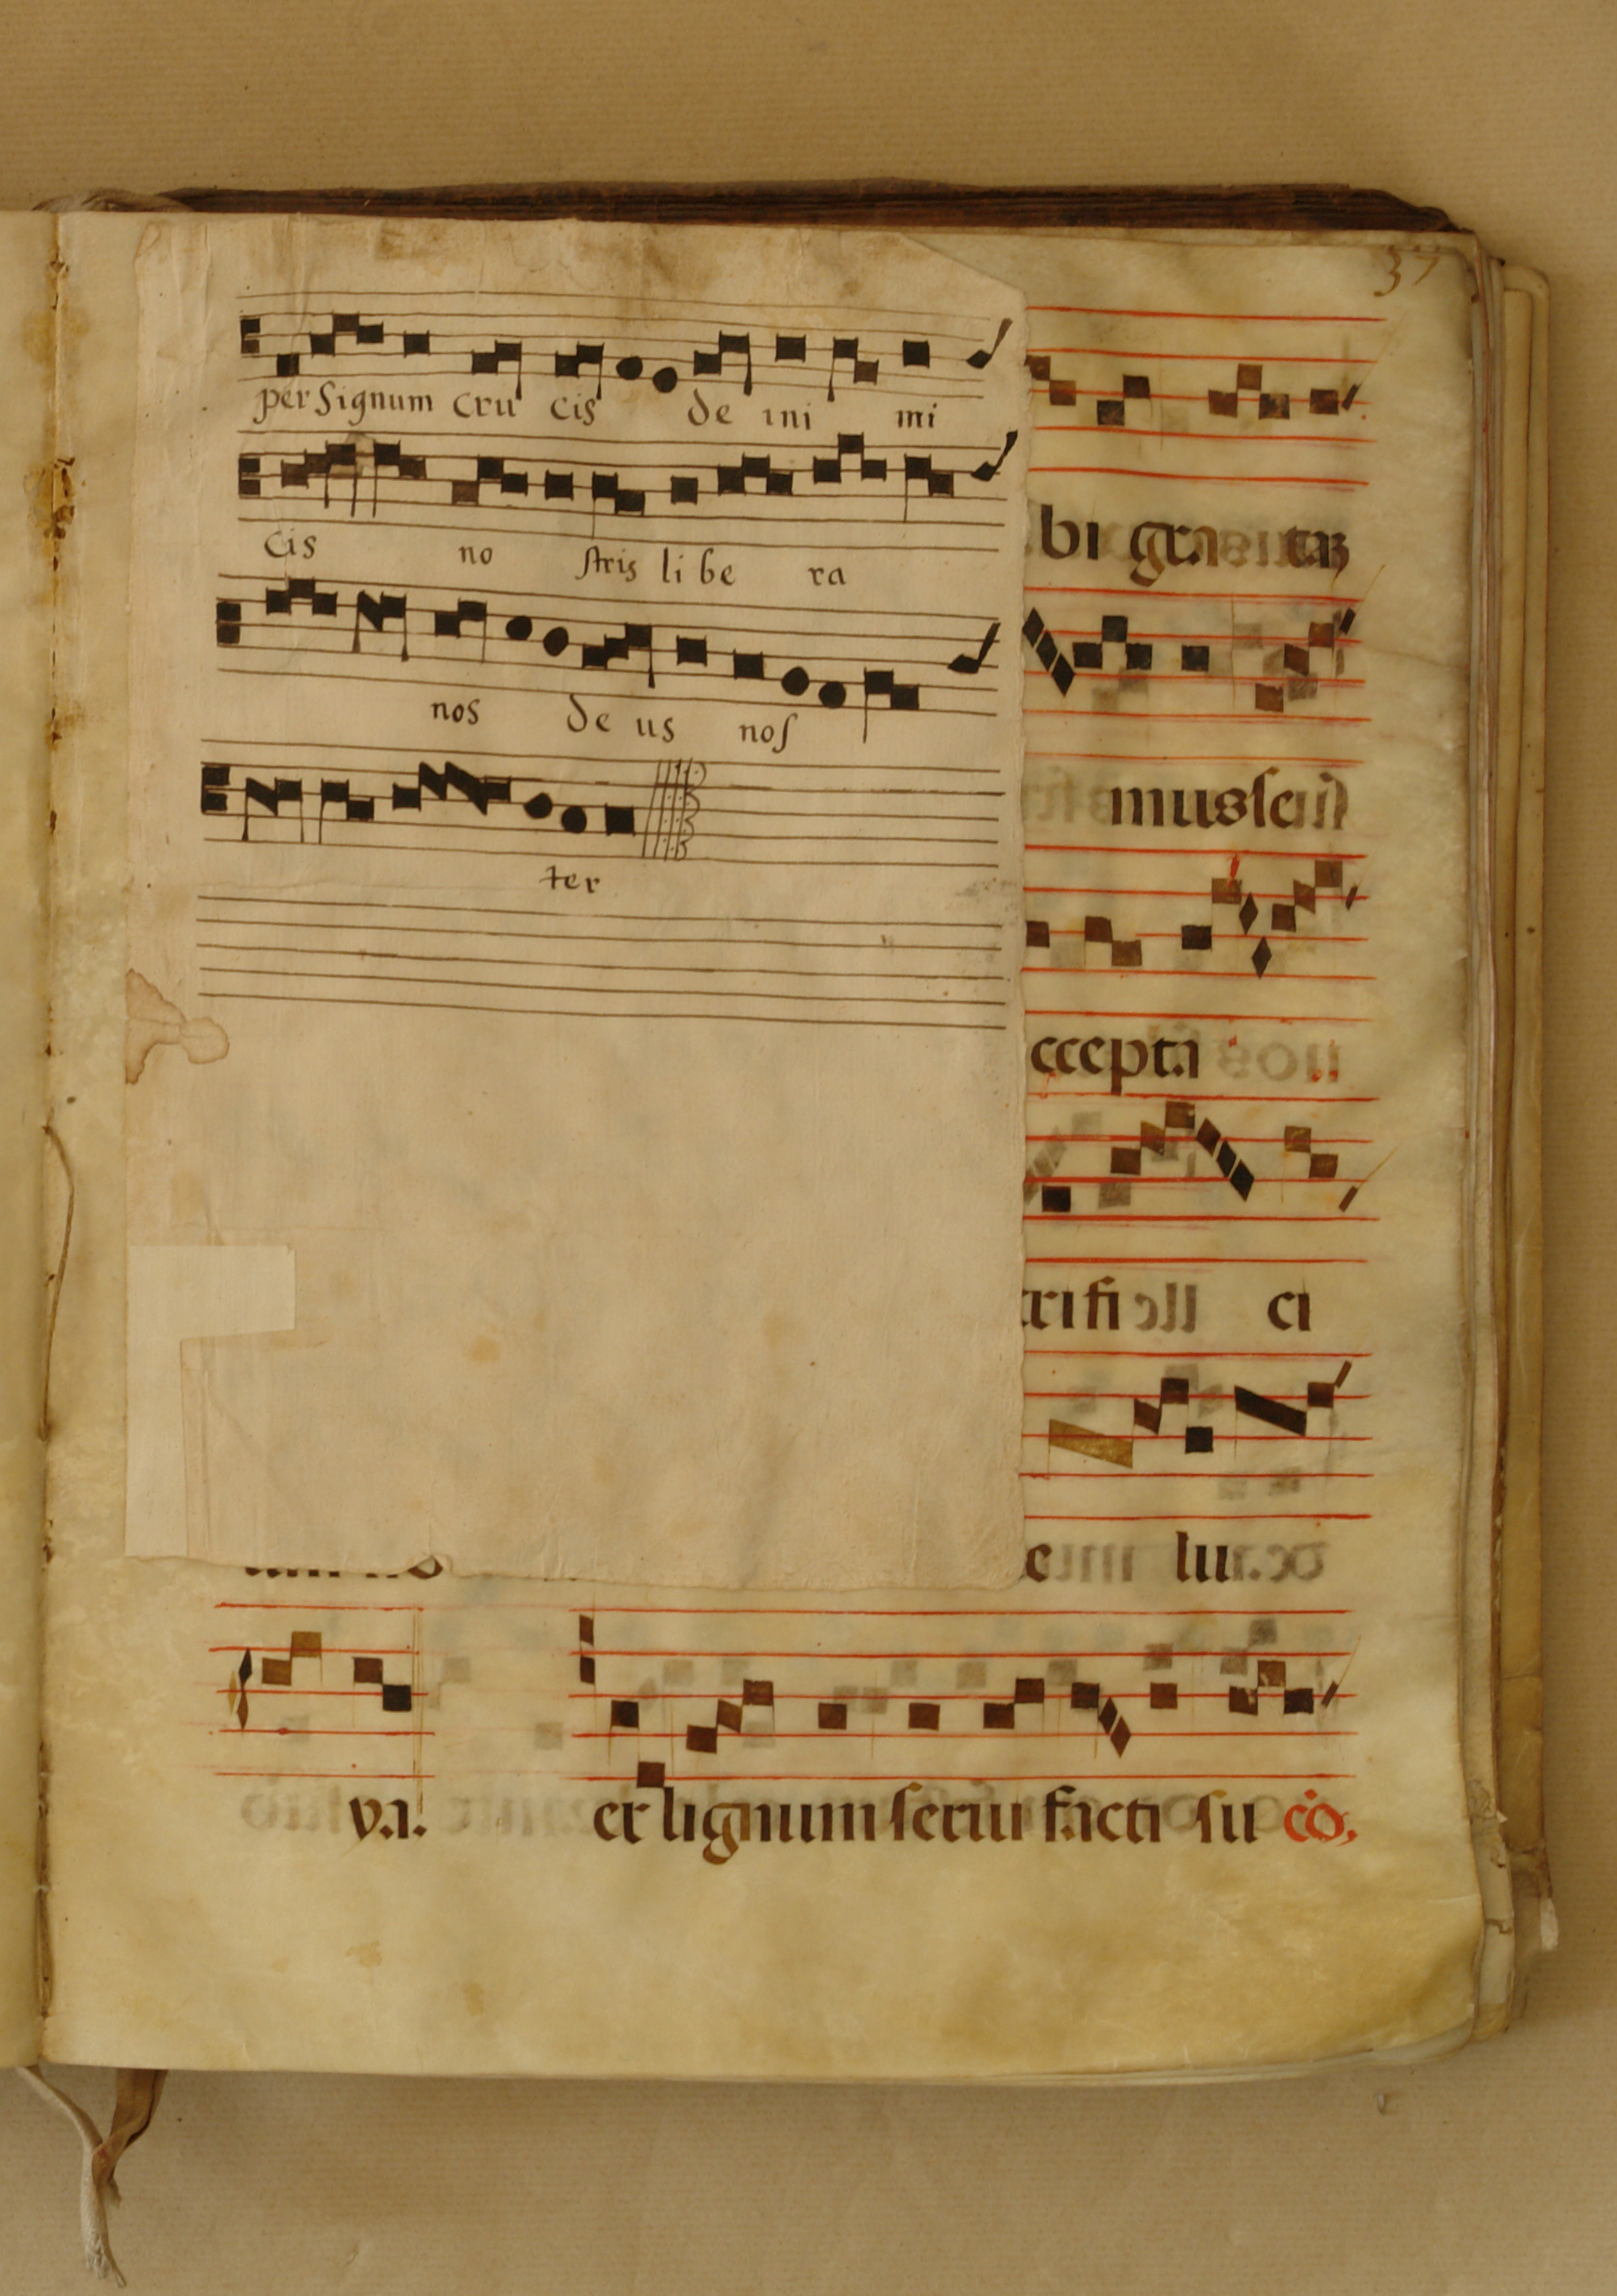 37
per Signum cru cis de ini mi
cis no stris li be ra
nos de us nos
ter
bi gra
mus
ccepta
rifi ci
lu
va. er lignum serui facti su co.